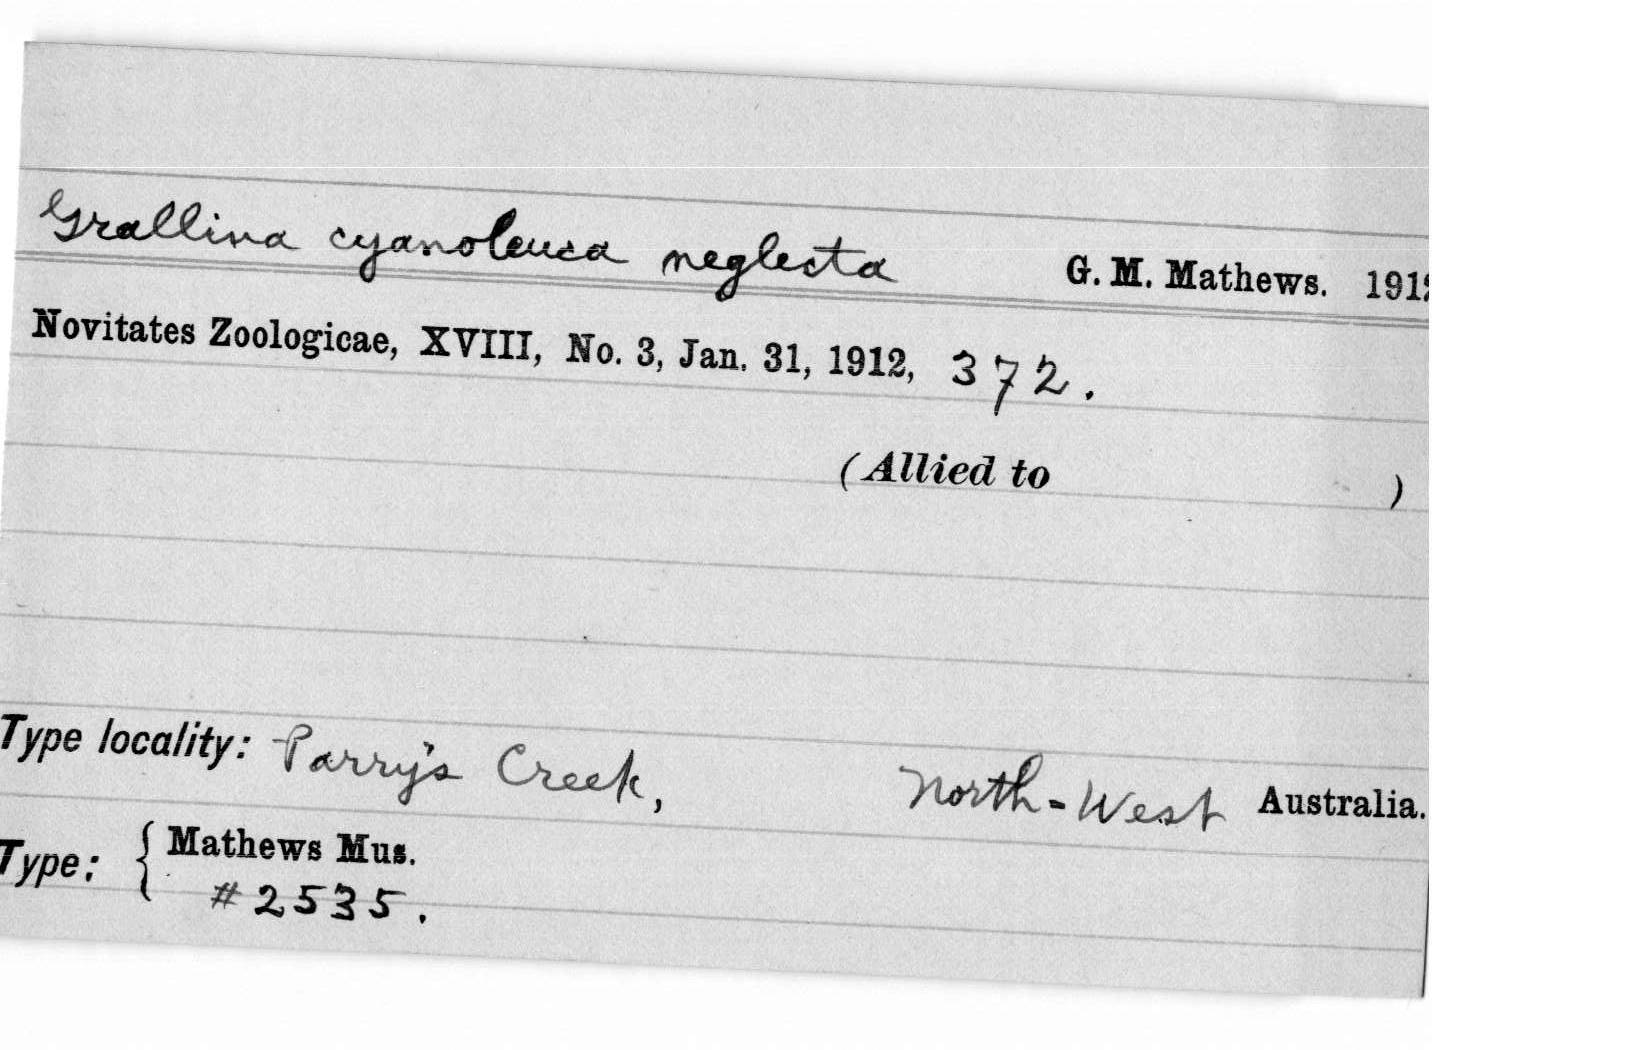 Grallina cyanoleuca neglecta G. M. Mathews. 1912
Novitates Zoologicae, XVIII, No. 3, Jan. 31, 1912, 372.
(Allied to )
Type locality: Parry's Creek, North-West Australia.
Type: { Mathews Mus.
#2535.